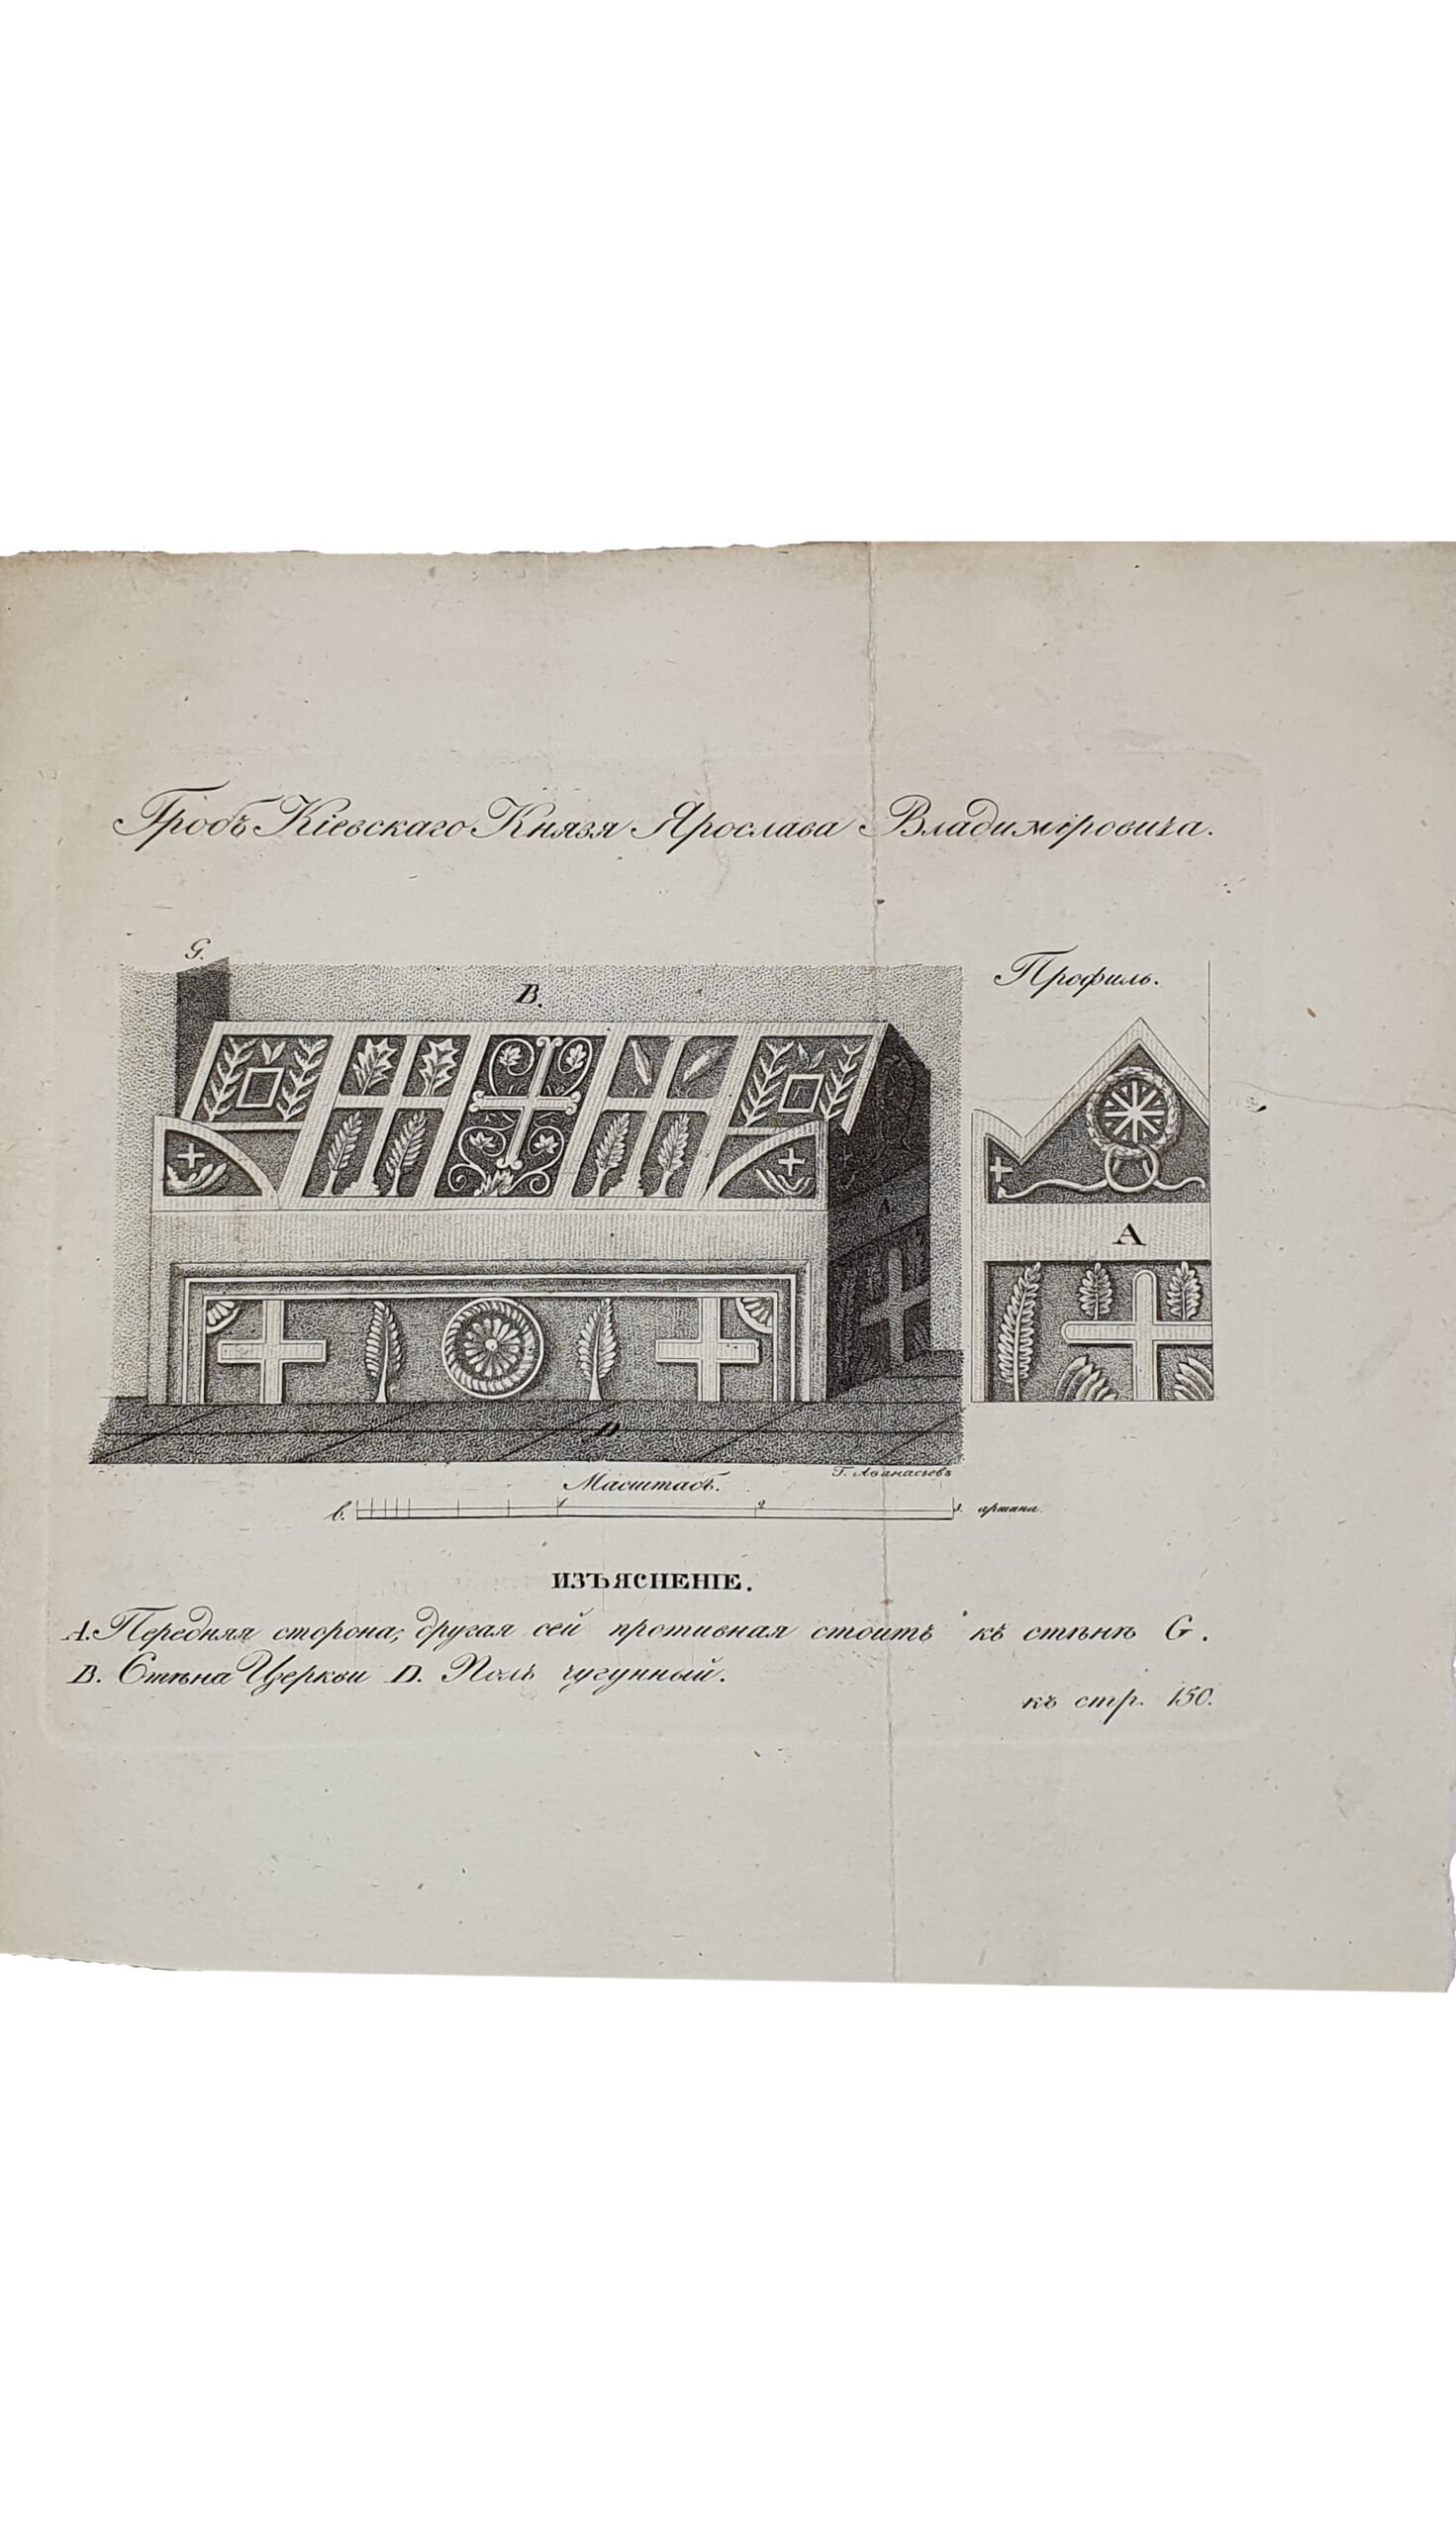 Гробъ Кіевскаго Князя Ярослава Владиміровича.
G.
B.
Профиль.
A
A
D
Г. Аѳанасьевъ
Масштабъ.
1 2 3. аршина.
ИЗЪЯСНЕНІЕ.
A. Передняя сторона, другая сей противная стоитъ къ стѣнѣ G.
B. Стѣна Церкви D. Полъ чугунный.
къ стр. 150.